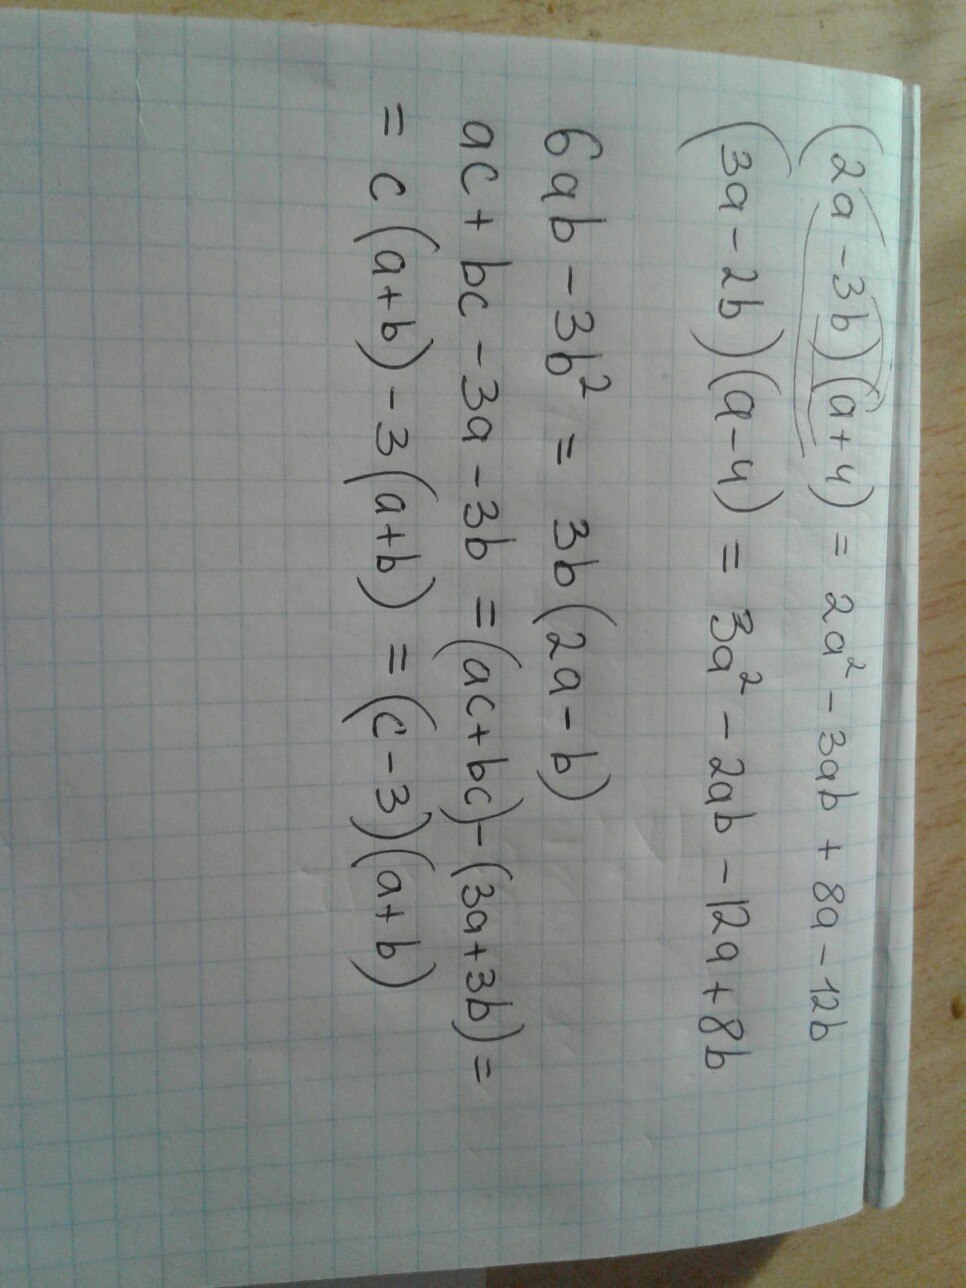 (2a-3b)(a+4) = 2a² - 3ab + 8a - 12b
(3a-2b)(a-4) = 3a² - 2ab - 12a + 8b
6ab - 3b² = 3b(2a-b)
ac + bc - 3a - 3b = (ac+bc) - (3a+3b) =
= c(a+b) - 3(a+b) = (c-3)(a+b)